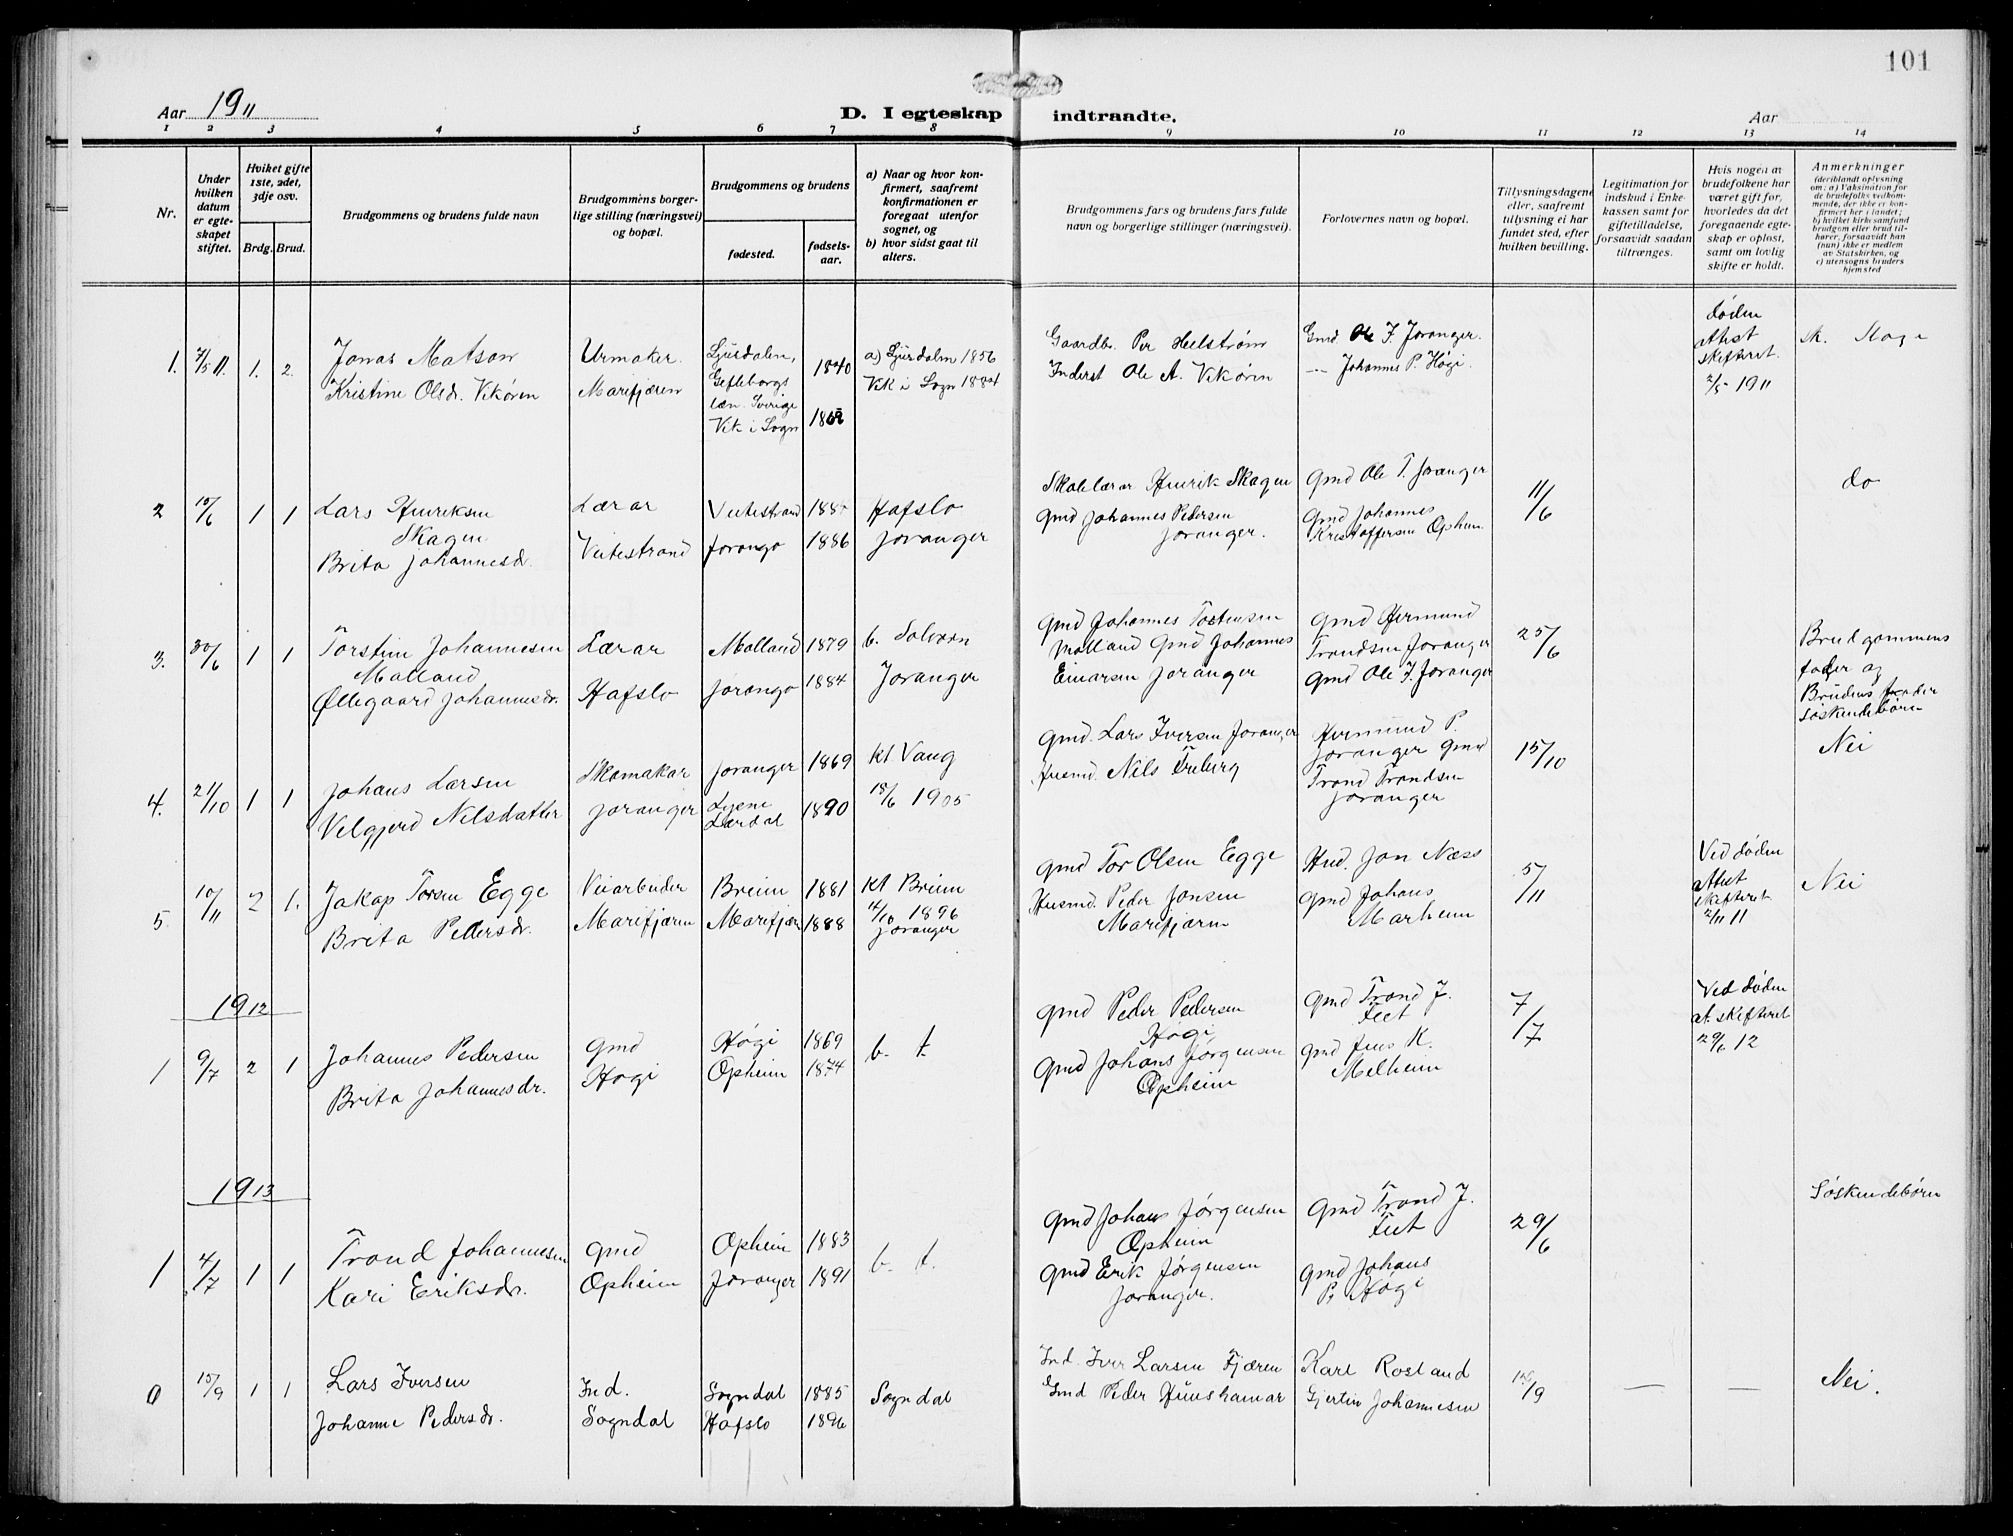 101
Aar 1911
D. I egteskap indtraadte.
Aar
1 2 3 4 5 6 7 8 9 10 11 12 13 14
Nr.
Under hvilken datum er egteskapet stiftet.
Hviket gifte 1ste, 2det, 3dje osv.
Brdg. Brud.
Brudgommens og brudens fulde navn
Brudgommens borgerlige stilling (næringsvei) og bopæl.
Brudgommens og brudens
fødested.
fødselsaar.
a) Naar og hvor konfirmert, saafremt konfirmationen er foregaat utenfor sognet, og
b) hvor sidst gaat til alters.
Brudgommens fars og brudens fars fulde navn og borgerlige stillinger (næringsvei).
Forlovernes navn og bopæl.
Tillysningsdagene eller, saafremt tillysning ei har fundet sted, efter hvilken bevilling.
Legitimation for indskud i Enkekassen samt for giftetilladelse, forsaavidt saadan tiltrænges.
Hvis nogen av brudefolkene har været gift før, hvorledes da det foregaaende egteskap er opløst, samt om lovlig skifte er holdt.
Anmerkninger
(deriblandt oplysning om: a) Vaksination for de brudefolks vedkommende, der ikke er konfirmert her i landet; b) hvilket kirkesamfund brudgom eller brud tilhører, forsaavidt han (hun) ikke er medlem av Statskirken, og c) utensogns bruders hjemsted
1. 7/5 11. 1. 2.
Jonas Matson
Kristine Olsdr. Vikøren
Urmaker.
Marifjæren
Ljusdalen,
Gefleborgs
læn. Sverige
Vik i Sogn
1840
a) Ljusdalen 1856
Vik i Sogn 1884
Gaardbr. Per Helstrøm
Inderst Ole A. Vikøren
Gmd. Ole J. Joranger.
-- Johannes P. Høgi.
døden
Attest
skifteret.
2/5 1911
2 15/6 1 1
Lars Henriksen
Skagen
Brita Johannesdr.
Lærar
Veitestrand
Veitestrand
Jorange
1886
Hafslo
Joranger
Skolelærar Henrik Skagen
Gmd Johannes Pedersen
Joranger.
Gmd Ole T. Joranger
Gmd Johannes
Kristoffersen Opheim
11/6
do
3. 30/6 1 1
Torstein Johannesen
Molland
Øllegaard Johannesdr.
Lærar
Hafslo
Molland
Jorange
1879
1884
b. Solvorn
Joranger
Gmd Johannes Tostensen
Molland Gmd Johannes
Einarsen Joranger
Gmd Hermund
Trondsen Joranger
Gmd Ole J. Joranger
25/6
Brudgommens
fader og
Brudens fader
søskendebørn
4. 21/10 1 1
Johans Larsen
Velgjerd Nilsdatter
Skomakar
Joranger
Joranger
Lysne
Lærdal
1869
1890
kt Vang
18/6 1905
Gmd. Lars Iversen Joranger
Husmd. Nils Freberg
Hermund P.
Joranger Gmd
Trond Trondsen
Joranger
15/10
Nei
5. 10/11 2 1.
Jakop Torsen Egge
Brita Pedersdr.
Veiarbeider
Marifjæren
Breim
Marifjæren
1881
1888
kt Breim
14/10 1896
Joranger
Gmd Tor Olsen Egge
Husmd. Peder Jonsen
Marifjæren
Hmd. Jon Næss
Gmd Johans
Marheim
5/11
Ved døden
Attest
skifteret
2/11 11
Nei
1912
1 9/7 2 1
Johannes Pedersen
Brita Johannesdr.
Gmd
Høgi
Høgi
Opheim
1869
1874
b. t.
Gmd Peder Pedersen
Høgi
Gmd Johans Jørgensen
Opheim
Gmd Trond J.
Feet
Gmd Jens K.
Melheim
7/7
Ved døden
at. skifteret
29/6 12
1913
1 4/7 1 1
Trond Johannesen
Kari Eriksdr.
Gmd
Opheim
Opheim
Joranger
1883
1891
b. t.
Gmd Johans Jørgensen
Opheim
Gmd Erik Jørgensen
Joranger.
Gmd Trond J.
Feet
Gmd Johans
P. Høgi
29/6
Søskendebørn
0 15/9 1 1
Lars Iversen
Johanne Pedersdr.
Ind.
Sogndal
Sogndal
Hafslo
1885
1896
Sogndal
Ind. Iver Larsen Fjæren
Gmd Peder Huushamar
Karl Rosland
Gjertin Johannesen
15/9
— —
Nei.